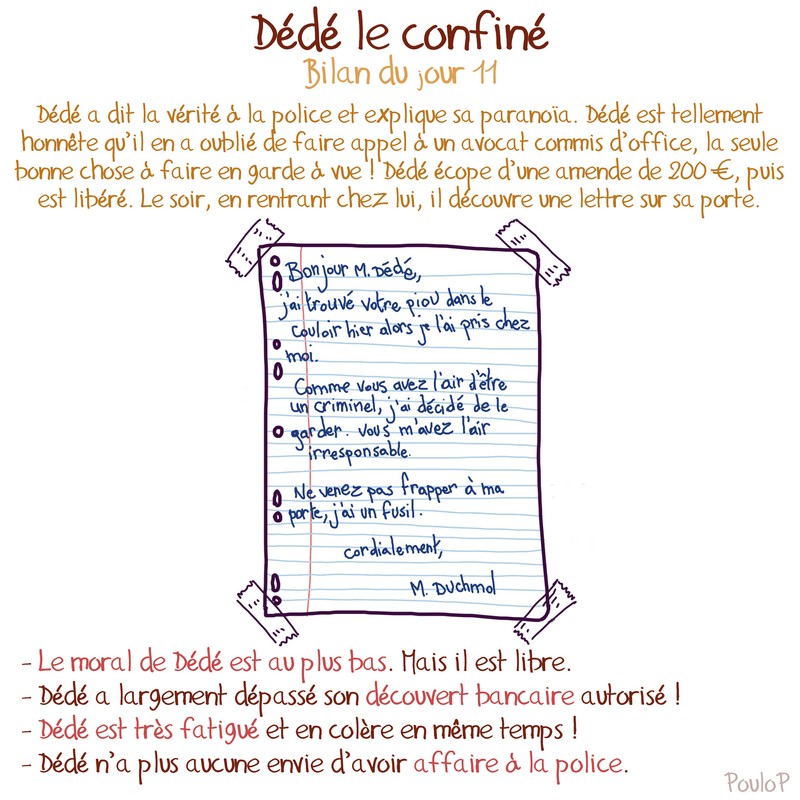 Dédé le confiné
Bilan du jour 11
Dédé a dit la vérité à la police et explique sa paranoïa. Dédé est tellement
honnête qu'il en a oublié de faire appel à un avocat commis d'office, la seule
bonne chose à faire en garde à vue ! Dédé écope d'une amende de 200 €, puis
est libéré. Le soir, en rentrant chez lui, il découvre une lettre sur sa porte.
Bonjour M. Dédé,
j'ai trouvé votre piou dans le
couloir hier alors je l'ai pris chez
moi.
Comme vous avez l'air d'être
un criminel, j'ai décidé de le
garder. vous m'avez l'air
irresponsable.
Ne venez pas frapper à ma
porte, j'ai un fusil.
cordialement,
M. Duchmol
- Le moral de Dédé est au plus bas. Mais il est libre.
- Dédé a largement dépassé son découvert bancaire autorisé !
- Dédé est très fatigué et en colère en même temps !
- Dédé n'a plus aucune envie d'avoir affaire à la police.
PouloP